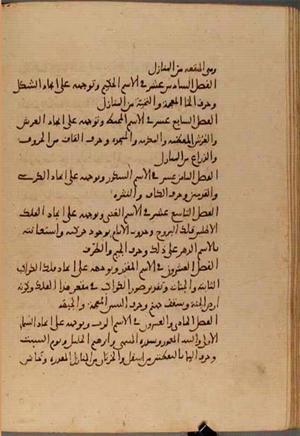 وهي الهقعة من المنازل
الفصل السادس عشر في الاسم الحكيم وتوجهه على ايجاد الشكل
وحرف الخاء المعجمة والتحية من المنازل
الفصل السابع عشر في الاسم المحيط وتوجهه على ايجاد العرش
والعرش الممجدة والمعظمة وحرف القاف من الحروف
والذراع من المنازل
الفصل الثامن عشر في الاسم الشكور وتوجهه على ايجاد الكرسي
والقدمين وحرف الكاف والنثرة
الفصل التاسع عشر في الاسم الغني وتوجهه على ايجاد الفلك
الاطلس فلك البروج وحدوث الايام بوجود حركته واستعانته
بالاسم الدهر على ذلك وحرف الجيم والطرف
الفصل العشرون في الاسم المقدر وتوجهه على ايجاد فلك الكواكب
الثابتة والجنات وتقدير صور الكواكب في مقعر هذا الفلك وكونه
ارض الجنة وسقف جهنم وحرف الشين المعجمة والجبهة
الفصل الحادي والعشرون في الاسم الرب وتوجهه على ايجاد السماء
الاولى والبيت المعمور والسدرة وابراهيم الخليل ويوم السبت
وحرف الياء بالنقطتين من اسفل والخرتان من المنازل